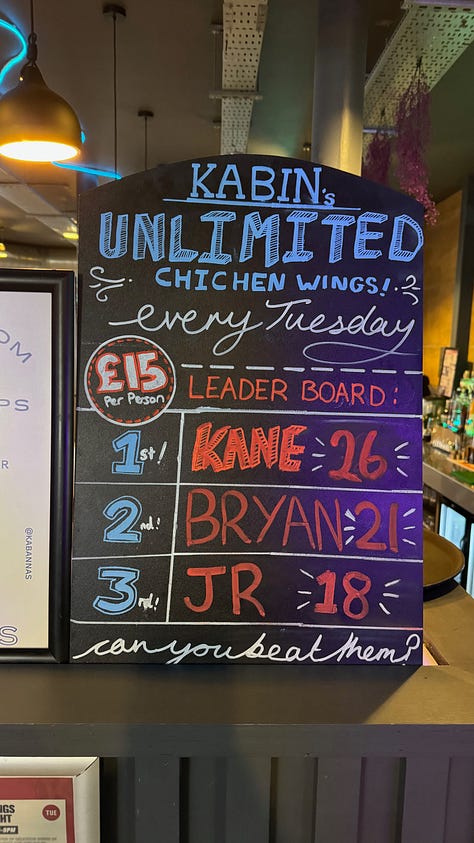 KABIN's
UNLIMITED
CHICHEN WINGS!
every Tuesday
£15
Per Person
LEADER BOARD:
1st! KANE 26
2nd! BRYAN 21
3rd! JR 18
can you beat them?
@KABANNAS
TUE